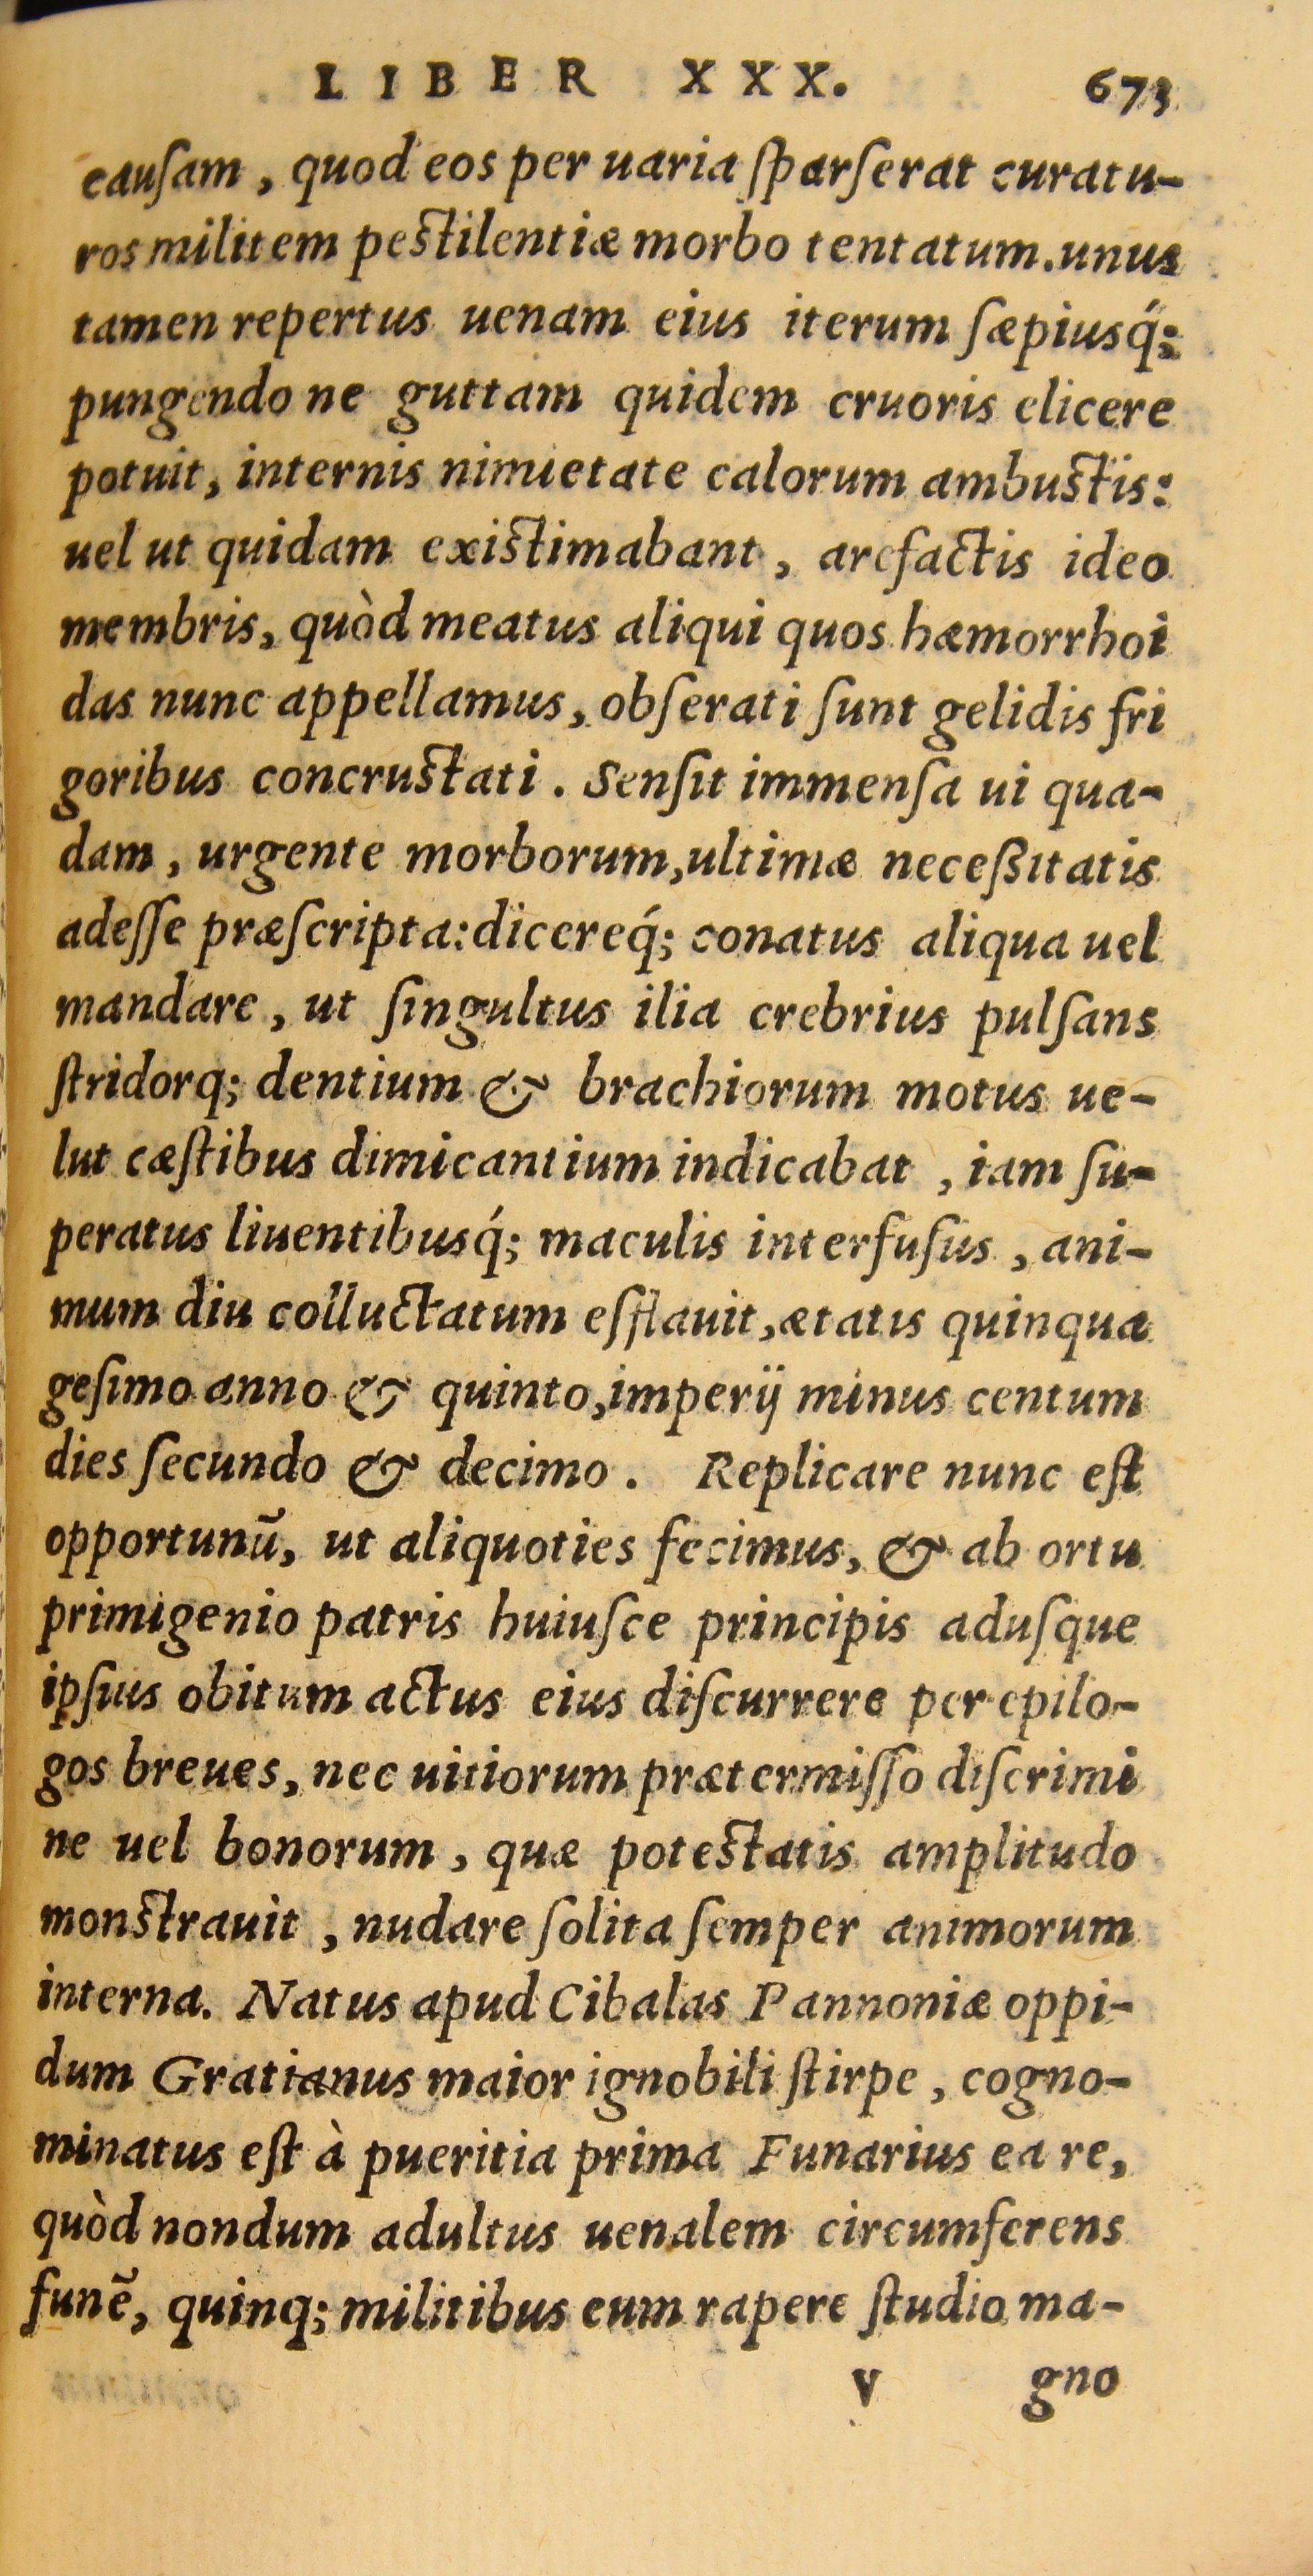 LIBER XXX. 673
cauſam, quod eos per uaria ſparſerat curatu-
ros militem peſtilentiæ morbo tentatum. unus
tamen repertus uenam eius iterum ſæpiusq́;
pungendo ne guttam quidem cruoris elicere
potuit, internis nimietate calorum ambuſtis:
uel ut quidam exiſtimabant, arefactis ideo
membris, quòd meatus aliqui quos hæmorrhoi
das nunc appellamus, obſerati ſunt gelidis fri
goribus concruſtati. Senſit immenſa ui qua-
dam, urgente morborum, ultimæ neceßitatis
adeſſe præſcripta: dicereq́; conatus aliqua uel
mandare, ut ſingultus ilia crebrius pulſans
ſtridorq; dentium & brachiorum motus ue-
lut cæſtibus dimicantium indicabat, iam ſu-
peratus liuentibusq́; maculis interfuſus, ani-
mum diu colluctatum efflauit, ætatis quinqua
geſimo anno & quinto, imperij minus centum
dies ſecundo & decimo. Replicare nunc eſt
opportunū, ut aliquoties fecimus, & ab ortu
primigenio patris huiuſce principis aduſque
ipſius obitum actus eius diſcurrere per epilo-
gos breues, nec uitiorum prætermiſſo diſcrimi
ne uel bonorum, quæ poteſtatis amplitudo
monſtrauit, nudare ſolita ſemper animorum
interna. Natus apud Cibalas Pannoniæ oppi-
dum Gratianus maior ignobili ſtirpe, cogno-
minatus eſt à pueritia prima Funarius ea re,
quòd nondum adultus uenalem circumferens
funē, quinq; militibus eum rapere ſtudio ma-
V gno